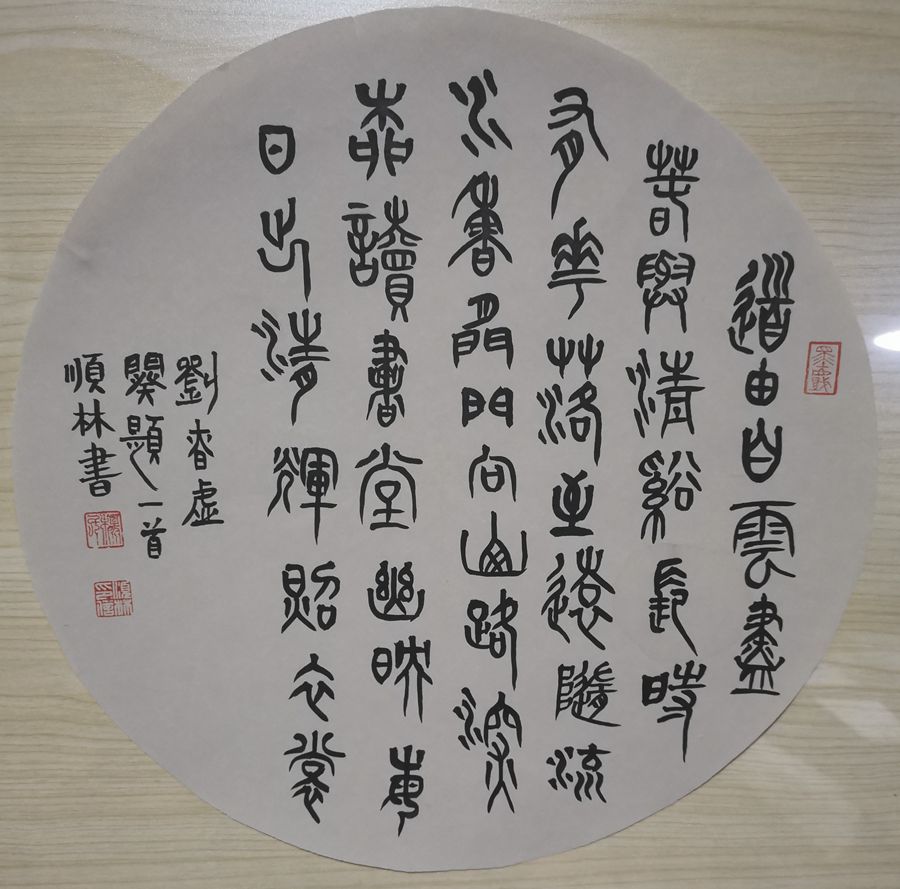 道由白雲盡
春與清谿長時
有華落至遠隨流
水香閒門向山路深
柳讀書堂幽映每
日清輝照衣裳
劉昚虛
闕題一首
順林書